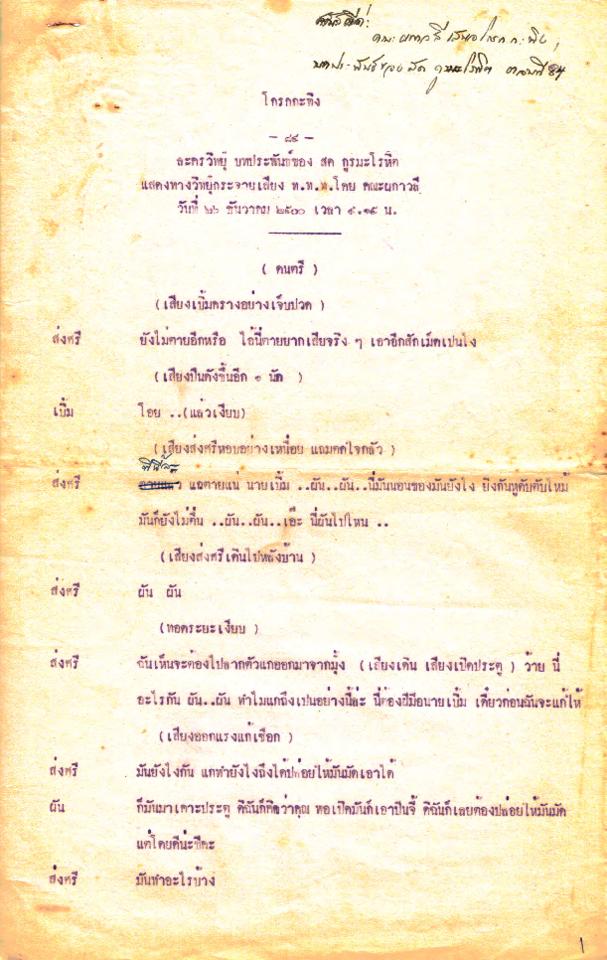 คณะผกาวลี เสนอโกรกกะทิง,
บทประพันธ์ของ สด กูรมะโรหิต ตอนที่ 84
โกรกกะทิง
— ๘๔ —
ละครวิทยุ บทประพันธ์ของ สด กูรมะโรหิต
แสดงทางวิทยุกระจายเสียง ท.ท.ท.โดย คณะผกาวลี
วันที่ ๒๖ ธันวาคม ๒๕๐๐ เวลา ๙.๑๕ น.
( ดนตรี )
(เสียงเบิ้มครางอย่างเจ็บปวด )
ส่งศรี ยังไม่ตายอีกหรือ ไอ้นี่ตายยากเสียจริง ๆ เอาอีกสักเม็ดเปนไง
(เสียงปืนดังขึ้นอีก ๑ นัด )
เบิ้ม โอย ..(แล้วเงียบ)
(เสียงส่งศรีหอบอย่างเหนื่อย แถมตกใจกลัว )
ทีนี้ละ
ส่งศรี แกตายแน่ นายเบิ้ม ..ผัน..ผัน..นี่มันนอนของมันยังไง ยิงกันหูดับตับไหม้
มันก็ยังไม่ตื่น ..ผัน..ผัน..เอ๊ะ นี่ผันไปไหน ..
(เสียงส่งศรีเดินไปหลังบ้าน )
ส่งศรี ผัน ผัน
(ทอดระยะเงียบ )
ส่งศรี ฉันเห็นจะต้องไปลากตัวแกออกมาจากมุ้ง (เสียงเดิน เสียงเปิดประตู ) ว้าย นี่
อะไรกัน ผัน..ผัน ทำไมแกถึงเปนอย่างนี้ล่ะ นี่ต้องฝีมือนายเบิ้ม เดี๋ยวก่อนฉันจะแก้ให้
(เสียงออกแรงแก้เชือก )
ส่งศรี มันยังไงกัน แกทำยังไงถึงได้ปล่อยให้มันมัดเอาได้
ผัน ก็มันมาเคาะประตู ดิฉันก็คิดว่าคุณ พอเปิดมันก็เอาปืนจี้ ดิฉันก็เลยต้องปล่อยให้มันมัด
แต่โดยดีน่ะซีคะ
ส่งศรี มันทำอะไรบ้าง
1